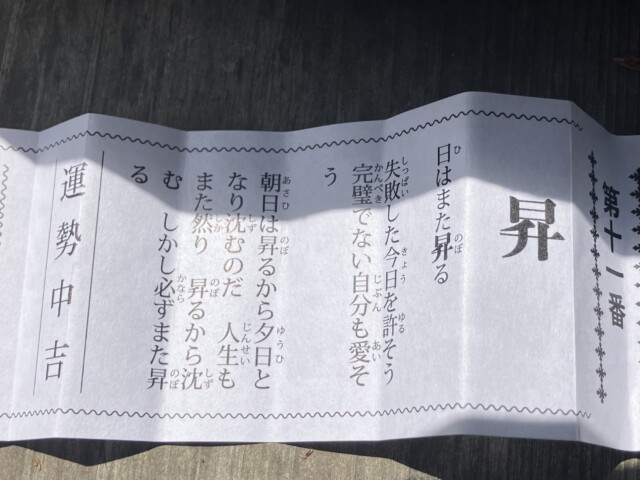 第十一番
昇
日はまた昇る
失敗した今日を許そう
完璧でない自分も愛そ
う
朝日は昇るから夕日と
なり沈むのだ　人生も
また然り　昇るから沈
む　しかし必ずまた昇
る
運勢中吉